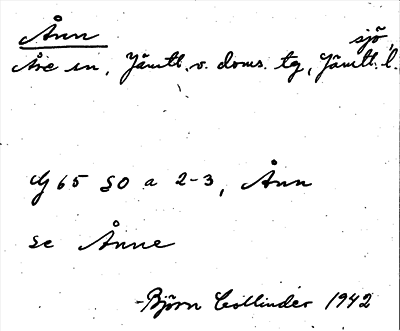 Ånn sjö
Åre sn, Jämtl. v. doms. tg, Jämtl. l.
G 65 SO a 2-3, Ånn
se Ånne
Björn Collinder 1942